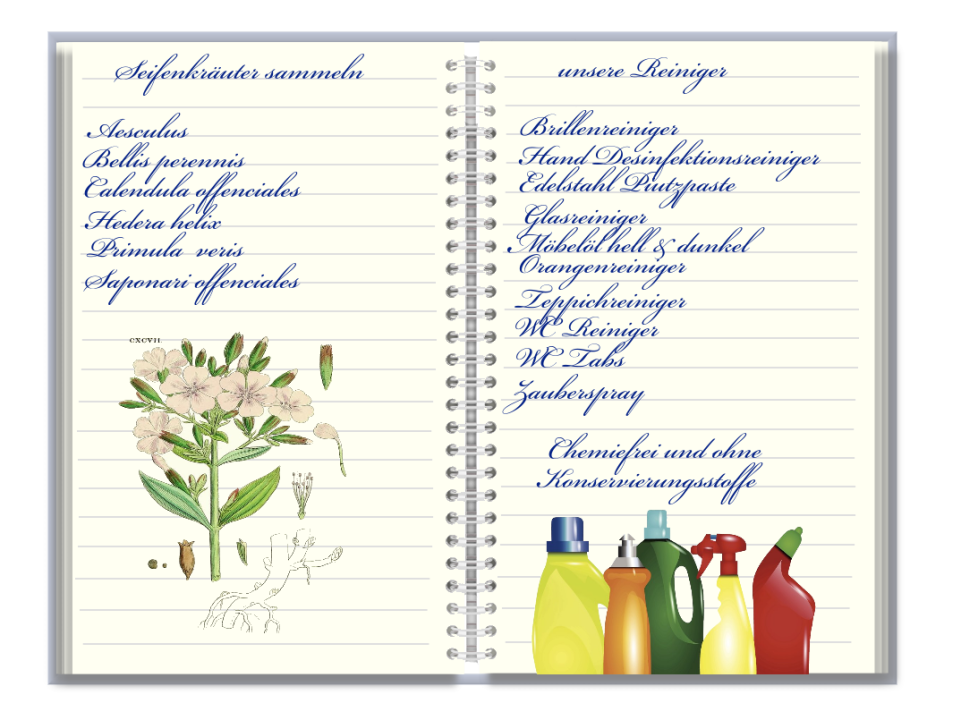 Seifenkräuter sammeln
Aesculus
Bellis perennis
Calendula offenciales
Hedera helix
Primula veris
Saponari offenciales
CXCVII.
unsere Reiniger
Brillenreiniger
Hand Desinfektionsreiniger
Edelstahl Piutzpaste
Glasreiniger
Möbelöl hell & dunkel
Orangenreiniger
Teppichreiniger
WC Reiniger
WC Tabs
Zauberspray
Chemiefrei und ohne
Konservierungsstoffe